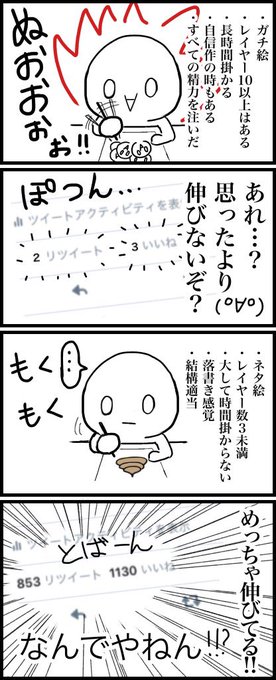 ・ガチ絵
・レイヤー10以上はある
・長時間掛かる
・自信作の時もある
・すべての精力を注いだ
ぬおおおぉぉ!!
あれ…?
思ったより
伸びないぞ?
(°A°)
ぽつん…
ツイートアクティビティを表
2 リツイート 3 いいね
・ネタ絵
・レイヤー数3未満
・大して時間掛からない
・落書き感覚
・結構適当
…
もくもく
めっちゃ伸びてる!!
ツイートアクティビティを表示
どばーん
853 リツイート 1130 いいね
なんでやねん!!?